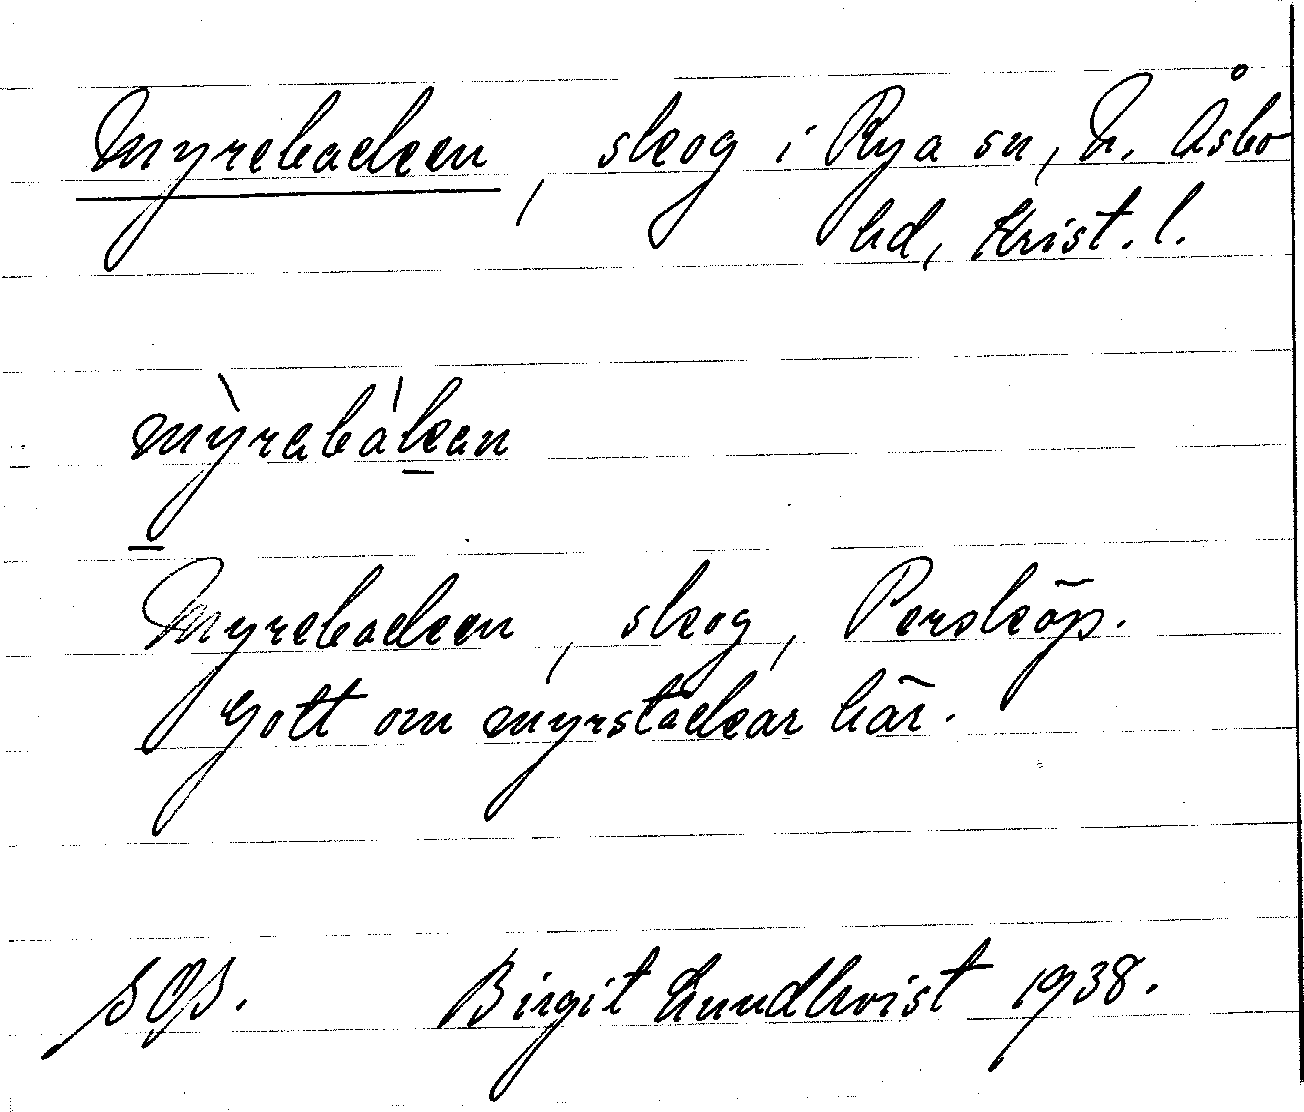 Myrebacken, skog i Rya sn, N. Åsbo
hd, Krist. l.
mỳrebákan
Myrebacken, skog, Perskōp.
Gott om myrstackar här.
SOS. Birgit Lundkvist 1938.